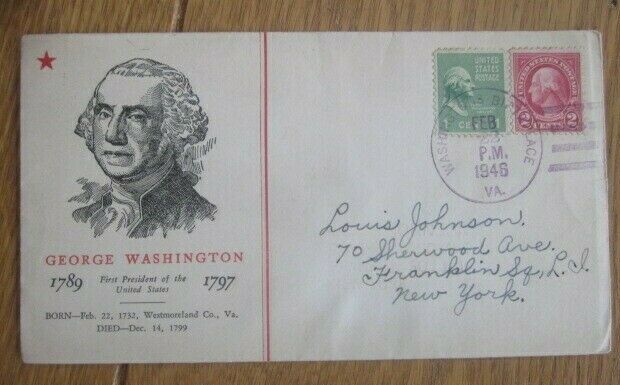 GEORGE WASHINGTON
1789 First President of the United States 1797
BORN—Feb. 22, 1732, Westmoreland Co., Va.
DIED—Dec. 14, 1799
UNITED
STATES
POSTAGE
1 CENT
UNITED STATES POSTAGE
2 2
WASHINGTON'S BIRTHPLACE
FEB
22
P.M.
1946
VA.
Louis Johnson.
70 Sherwood Ave.
Franklin Sq., L.I.
New York.